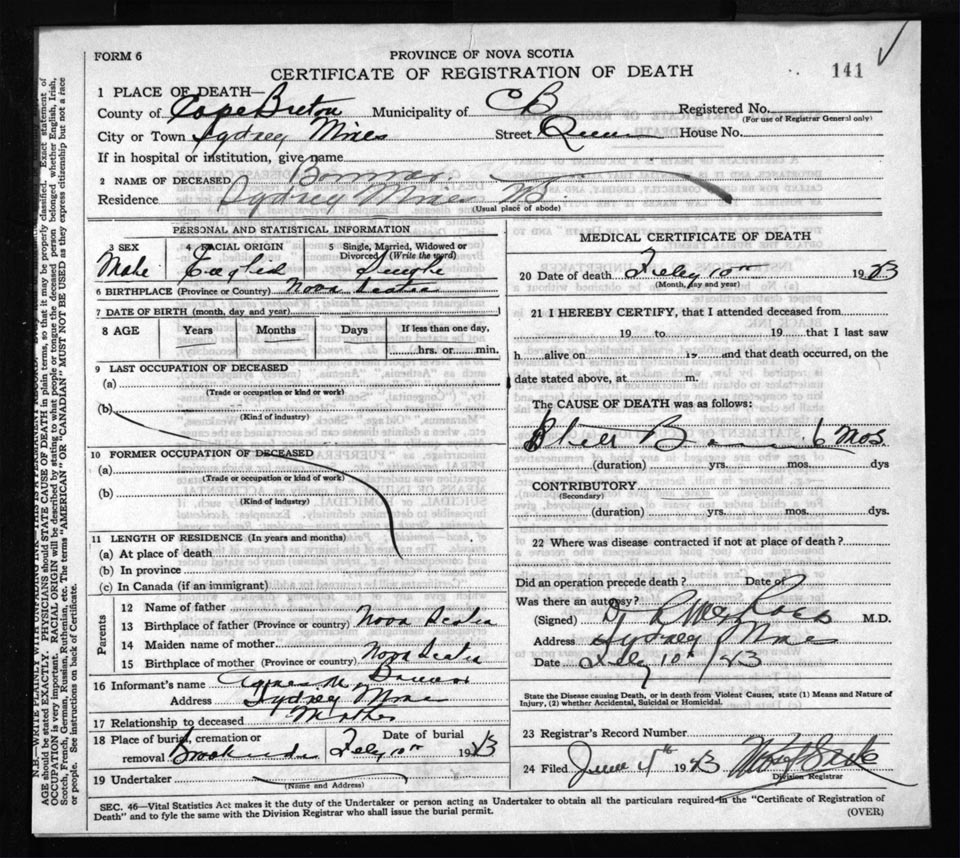 FORM 6
PROVINCE OF NOVA SCOTIA
CERTIFICATE OF REGISTRATION OF DEATH
141
1 PLACE OF DEATH—
County of Cape Breton Municipality of C B Registered No.
(For use of Registrar General only)
City or Town Sydney Mines Street Queen House No.
If in hospital or institution, give name
2 NAME OF DECEASED
Residence Sydney Mines
(Usual place of abode)
PERSONAL AND STATISTICAL INFORMATION
3 SEX
Male
4 RACIAL ORIGIN
English
5 Single, Married, Widowed or Divorced (Write the word)
Single
6 BIRTHPLACE (Province or Country) Nova Scotia
7 DATE OF BIRTH (month, day and year)
8 AGE Years Months Days If less than one day,
hrs. or min.
9 LAST OCCUPATION OF DECEASED
(a)
(Trade or occupation or kind of work)
(b)
(Kind of industry)
10 FORMER OCCUPATION OF DECEASED
(a)
(Trade or occupation or kind of work)
(b)
(Kind of industry)
11 LENGTH OF RESIDENCE (In years and months)
(a) At place of death
(b) In province
(c) In Canada (if an immigrant)
Parents
12 Name of father
13 Birthplace of father (Province or country) Nova Scotia
14 Maiden name of mother
15 Birthplace of mother (Province or country) Nova Scotia
16 Informant's name Agnes M.
Address Sydney Mines
17 Relationship to deceased Mother
18 Place of burial, cremation or removal Date of burial
Feby 10th 19
19 Undertaker
(Name and Address)
MEDICAL CERTIFICATE OF DEATH
20 Date of death Feby 10th 19
(Month, day and year)
21 I HEREBY CERTIFY, that I attended deceased from
19 to 19 that I last saw
h alive on 19 and that death occurred, on the
date stated above, at m.
The CAUSE OF DEATH was as follows:
Still Born 6 mos
(duration) yrs. mos. dys
CONTRIBUTORY
(Secondary)
(duration) yrs. mos. dys.
22 Where was disease contracted if not at place of death?
Did an operation precede death? Date of
Was there an autopsy?
(Signed) M.D.
Address Sydney Mines
Date Feby 10th
State the Disease causing Death, or in death from Violent Causes, state (1) Means and Nature of
Injury, (2) whether Accidental, Suicidal or Homicidal.
23 Registrar's Record Number
24 Filed June 4th 19
Division Registrar
SEC. 46—Vital Statistics Act makes it the duty of the Undertaker or person acting as Undertaker to obtain all the particulars required in the "Certificate of Registration of
Death" and to fyle the same with the Division Registrar who shall issue the burial permit.
(OVER)
N.B.—WRITE PLAINLY WITH UNFADING INK—THIS IS A PERMANENT RECORD.
AGE should be stated EXACTLY. PHYSICIANS should STATE CAUSE OF DEATH in plain terms, so that it may be properly classified. Exact statement of
OCCUPATION is very important. RACIAL ORIGIN will be described by stating to what people or tongue the deceased person belonged whether English, Irish,
Scotch, French, German, Russian, Ruthenian, etc. The terms "AMERICAN" OR "CANADIAN" MUST NOT BE USED as they express citizenship but not a race
or people. See instructions on back of Certificate.